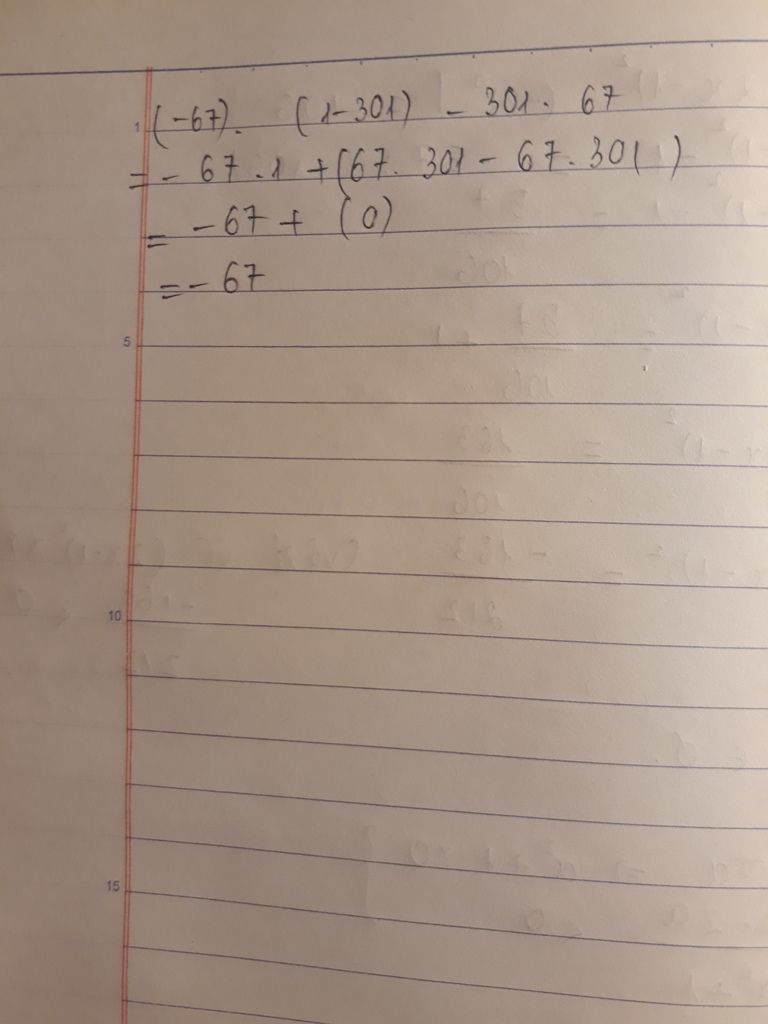 (-67). (1-301) - 301. 67
= - 67 .1 + (67. 301 - 67. 301)
= -67 + (0)
= - 67
1
5
10
15